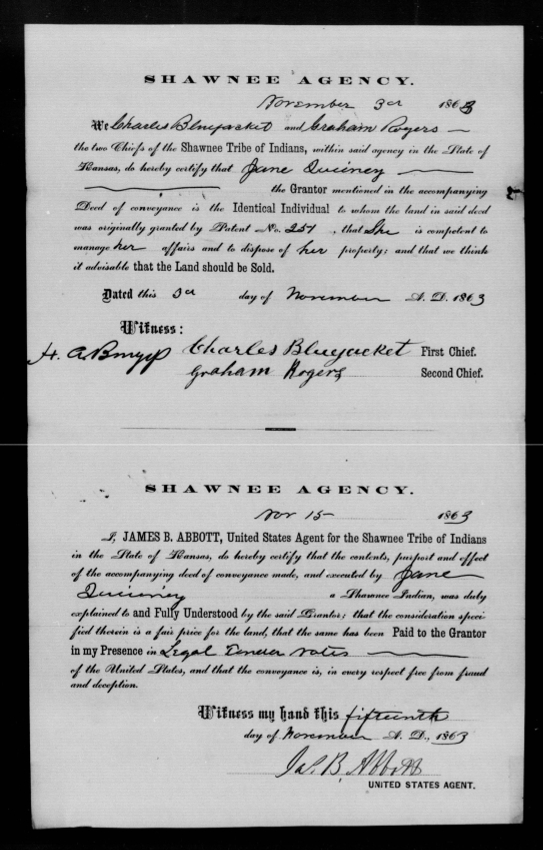 SHAWNEE AGENCY.
November 3rd 1863
We Charles Bluejacket and Graham Rogers
the two Chiefs of the Shawnee Tribe of Indians, within said agency in the State of
Kansas, do hereby certify that Jane Quinney
the Grantor mentioned in the accompanying
Deed of conveyance is the Identical Individual to whom the land in said deed
was originally granted by Patent No. 251, that She is competent to
manage her affairs and to dispose of her property; and that we think
it advisable that the Land should be Sold.
Dated this 3rd day of November A. D. 1863
Witness:
H. A. Charles Bluejacket First Chief.
Graham Rogers Second Chief.
SHAWNEE AGENCY.
Nov 15 1863
I, JAMES B. ABBOTT, United States Agent for the Shawnee Tribe of Indians
in the State of Kansas, do hereby certify that the contents, purport and effect
of the accompanying deed of conveyance made, and executed by Jane
Quinney a Shawnee Indian, was duly
explained to and Fully Understood by the said Grantor; that the consideration speci-
fied therein is a fair price for the land, that the same has been Paid to the Grantor
in my Presence in Legal Tender notes
of the United States, and that the conveyance is, in every respect free from fraud
and deception.
Witness my hand this fifteenth
day of November A. D., 1863
Jas. B. Abbott
UNITED STATES AGENT.